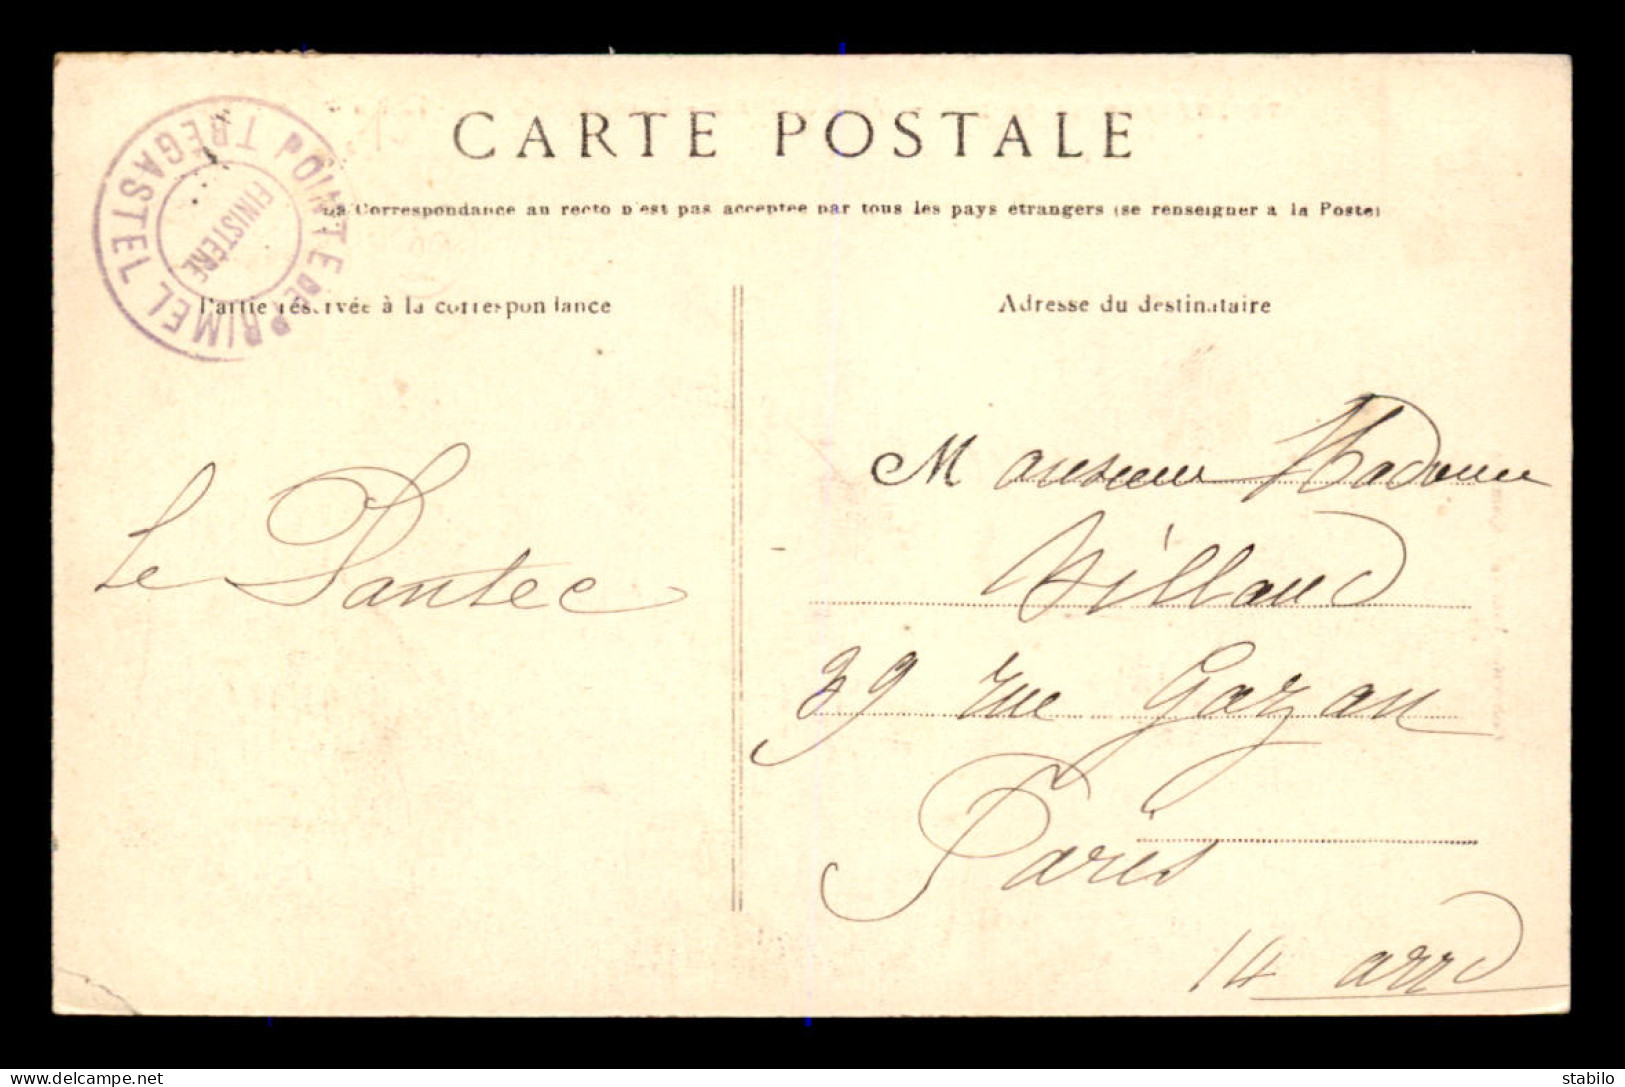 CARTE POSTALE
La Correspondance au recto n'est pas acceptée par tous les pays étrangers (se renseigner à la Poste)
POINTE DE PRIMEL TREGASTEL
FINISTÈRE
Partie réservée à la correspondance
Adresse du destinataire
Le Santec
Monsieur Madame
Billaud
39 rue Gazan
Paris
14 arrd
stabilo